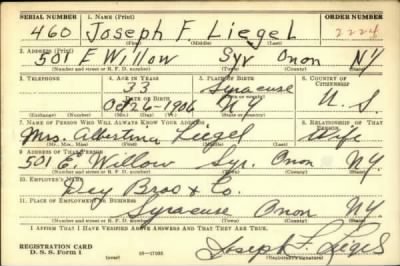 SERIAL NUMBER 1. NAME (Print) ORDER NUMBER
460 Joseph F Liegel 2224
(First) (Middle) (Last)
2. ADDRESS (Print)
501 E Willow Syr Onon NY
(Number and street or R. F. D. number) (Town) (County) (State)
3. TELEPHONE 4. AGE IN YEARS 5. PLACE OF BIRTH 6. COUNTRY OF CITIZENSHIP
33 Syracuse
DATE OF BIRTH
Oct 26-1906 N.Y. U.S.
7. NAME OF PERSON WHO WILL ALWAYS KNOW YOUR ADDRESS 8. RELATIONSHIP OF THAT PERSON
Mrs. Albertina Liegel Wife
(Mr., Mrs., Miss) (First) (Middle) (Last)
9. ADDRESS OF THAT PERSON
501 E. Willow Syr. Onon NY
(Number and street or R. F. D. number) (Town) (County) (State)
10. EMPLOYER'S NAME
Dey Bros & Co.
11. PLACE OF EMPLOYMENT OR BUSINESS
Syracuse Onon NY
(Number and street or R. F. D. number) (Town) (County) (State)
I AFFIRM THAT I HAVE VERIFIED ABOVE ANSWERS AND THAT THEY ARE TRUE.
REGISTRATION CARD Joseph F. Liegel
D. S. S. Form 1 (Registrant's signature)